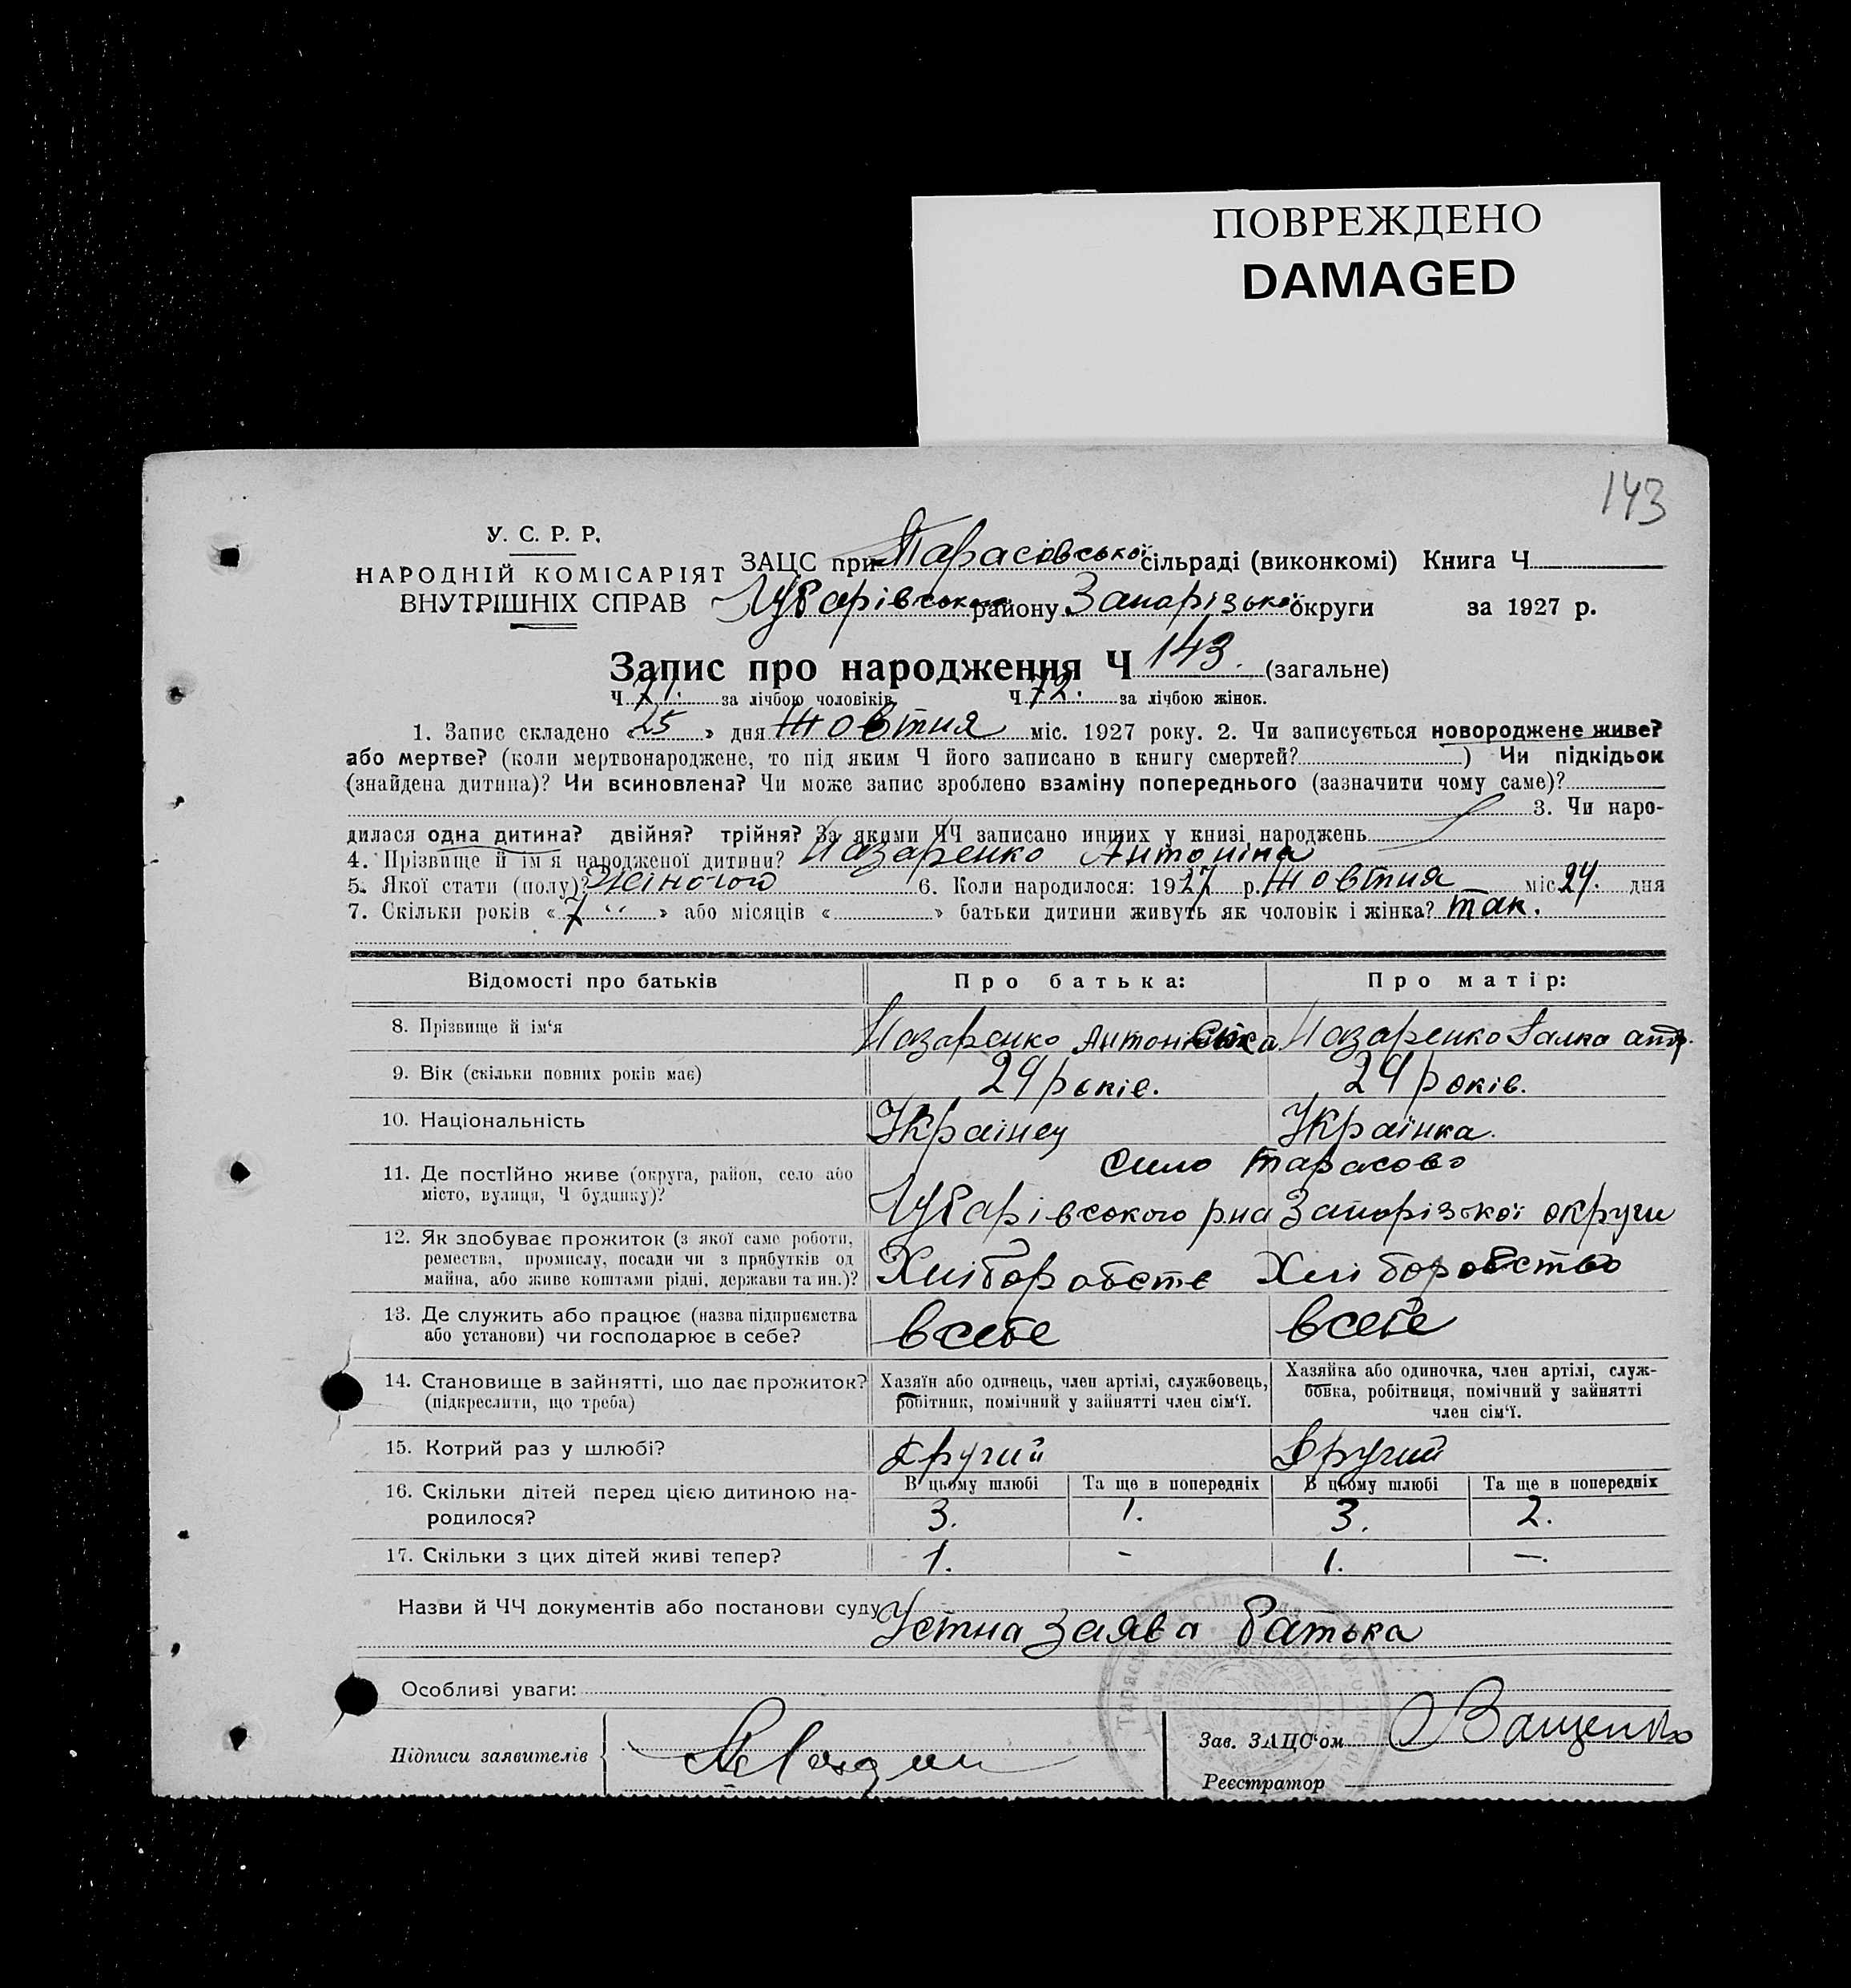 ПОВРЕЖДЕНО
DAMAGED
143
У. С. Р. Р.
НАРОДНІЙ КОМІСАРІЯТ
ВНУТРІШНІХ СПРАВ
ЗАЦС при Тарасівської сільраді (виконкомі) Книга Ч
Чубарівського району Запорізької округи за 1927 р.
Запис про народження Ч 143. (загальне)
Ч 71. за лічбою чоловіків Ч 72. за лічбою жінок.
1. Запис складено «25» дня Жовтня міс. 1927 року. 2. Чи записується новороджене живе?
або мертве? (коли мертвонароджене, то під яким Ч його записано в книгу смертей? ) Чи підкідьок
(знайдена дитина)? Чи всиновлена? Чи може запис зроблено взаміну попереднього (зазначити чому саме)?
3. Чи наро-
дилася одна дитина? двійня? трійня? За якими ЧЧ записано инших у книзі народжень
4. Прізвище й ім'я народженої дитини? Назаренко Антоніна
5. Якої стати (полу)? Жіночого 6. Коли народилося: 1927 р. Жовтня міс 24. дня
7. Скільки років «7» або місяців « » батьки дитини живуть як чоловік і жінка? так.
Відомості про батьків Про батька: Про матір:
8. Прізвище й ім'я Назаренко Антон Назаренко Галка Андр.
9. Вік (скільки повних років має) 29 років. 29 років.
10. Національність Українец Українка.
11. Де постійно живе (округа, район, село або
місто, вулиця, Ч будинку)?
Сило Тарасово
Чубарівського рна Запорізької округи
12. Як здобуває прожиток (з якої саме роботи,
ремества, промислу, посади чи з прибутків од
майна, або живе коштами рідні, держави та ин.)?
Хліборобств Хліборобство
13. Де служить або працює (назва підприємства
або установи) чи господарює в себе?
всебе всебе
14. Становище в зайнятті, що дає прожиток?
(підкреслити, що треба)
Хазяїн або одинець, член артілі, службовець,
робітник, помічний у зайнятті член сім'ї.
Хазяйка або одиночка, член артілі, служ-
бовка, робітниця, помічний у зайнятті
член сім'ї.
15. Котрий раз у шлюбі? другий другий
В цьому шлюбі Та ще в попередніх В цьому шлюбі Та ще в попередніх
16. Скільки дітей перед цією дитиною на-
родилося?
3. 1. 3. 2.
17. Скільки з цих дітей живі тепер? 1. - 1. -.
Назви й ЧЧ документів або постанови суду
Устна заява батька
Особливі уваги:
Підписи заявителів
Зав. ЗАЦС'ом Ващенко
Реєстратор